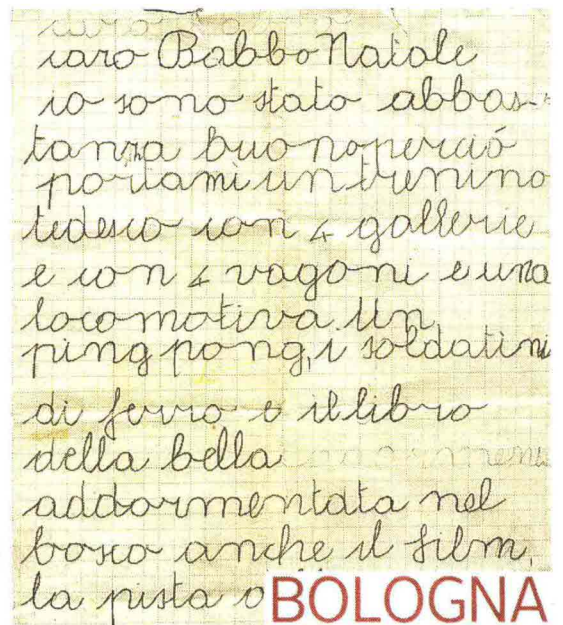 caro Babbo Natale
io sono stato abbas-
tanza buono perciò
portami un trenino
tedesco con 4 gallerie
e con 4 vagoni e una
locomotiva. Un
ping pong, i soldatini
di ferro e il libro
della bella
addormentata nel
bosco anche il film,
la pista
BOLOGNA